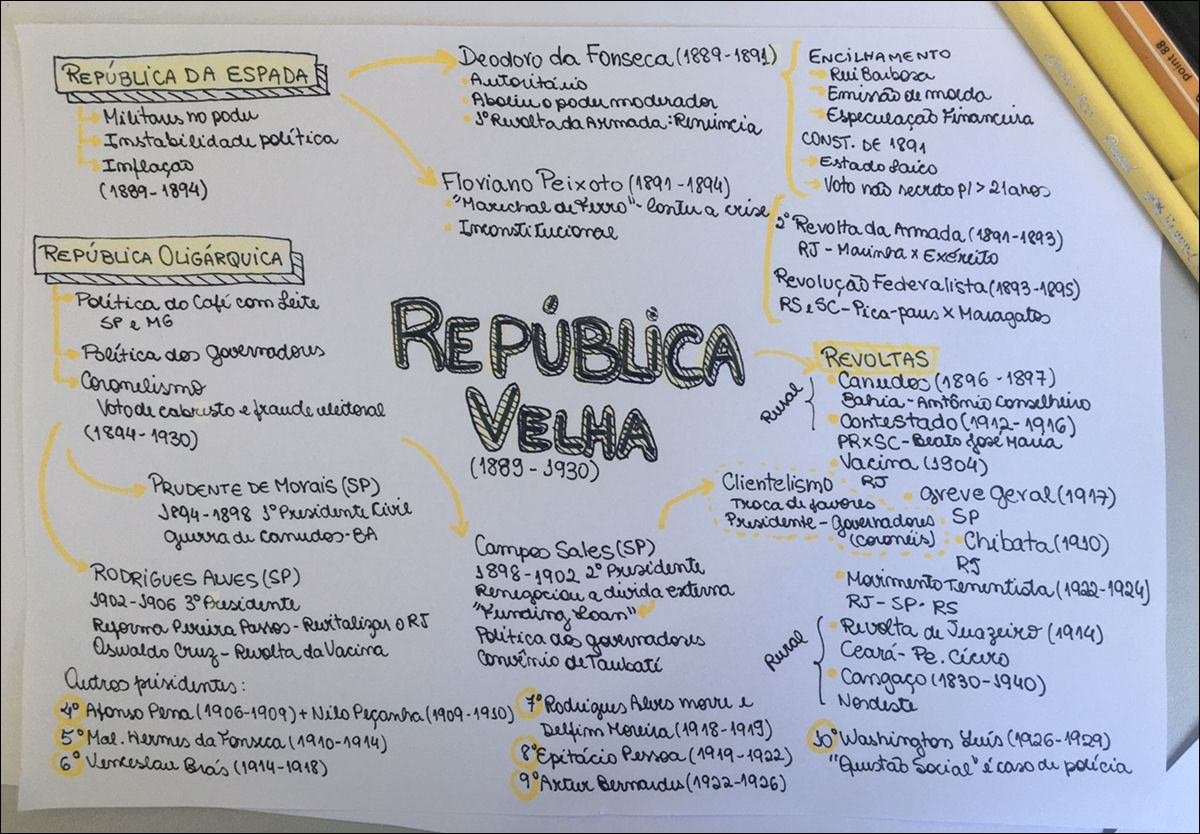 REPÚBLICA DA ESPADA
Militares no poder
Instabilidade política
Inflação
(1889-1894)
Deodoro da Fonseca (1889-1891)
Autoritário
Aboliu o poder moderador
1ª Revolta da Armada: Renúncia
Floriano Peixoto (1891-1894)
"Marechal de Ferro" - Conter a crise
Inconstitucional
ENCILHAMENTO
Rui Barbosa
Emissão de moeda
Especulação Financeira
CONST. DE 1891
Estado laico
Voto não secreto p/ > 21 anos
2ª Revolta da Armada (1891-1893)
RJ - Marinha x Exército
Revolução Federalista (1893-1895)
RS e SC - Pica-paus x Maragatos
REPÚBLICA OLIGÁRQUICA
Política do Café com Leite
SP e MG
Política dos governadores
Coronelismo
Voto de cabresto e fraude eleitoral
(1894-1930)
REPÚBLICA
VELHA
(1889-1930)
PRUDENTE DE MORAIS (SP)
1894-1898 1º Presidente Civil
guerra de canudos-BA
RODRIGUES ALVES (SP)
1902-1906 3º Presidente
Reforma Pereira Passos - Revitalizar o RJ
Oswaldo Cruz - Revolta da Vacina
Campos Sales (SP)
1898-1902 2º Presidente
Renegociou a dívida externa
"Funding Loan"
Política dos governadores
Convênio de Taubaté
Clientelismo
Troca de favores
Presidente - governadores
(coronéis)
REVOLTAS
Rural
Canudos (1896-1897)
Bahia - Antônio Conselheiro
Contestado (1912-1916)
PR x SC - Beato José Maria
Vacina (1904)
RJ
Greve geral (1917)
SP
Chibata (1910)
RJ
Movimento Tenentista (1922-1924)
RJ - SP - RS
Rural
Revolta de Juazeiro (1914)
Ceará - Pe. Cícero
Cangaço (1830-1940)
Nordeste
Outros presidentes:
4º Afonso Pena (1906-1909) + Nilo Peçanha (1909-1910)
5º Mal. Hermes da Fonseca (1910-1914)
6º Venceslau Brás (1914-1918)
7º Rodrigues Alves morre e
Delfim Moreira (1918-1919)
8º Epitácio Pessoa (1919-1922)
9º Artur Bernardes (1922-1926)
10º Washington Luís (1926-1929)
"Questão Social" é caso de polícia
point 88